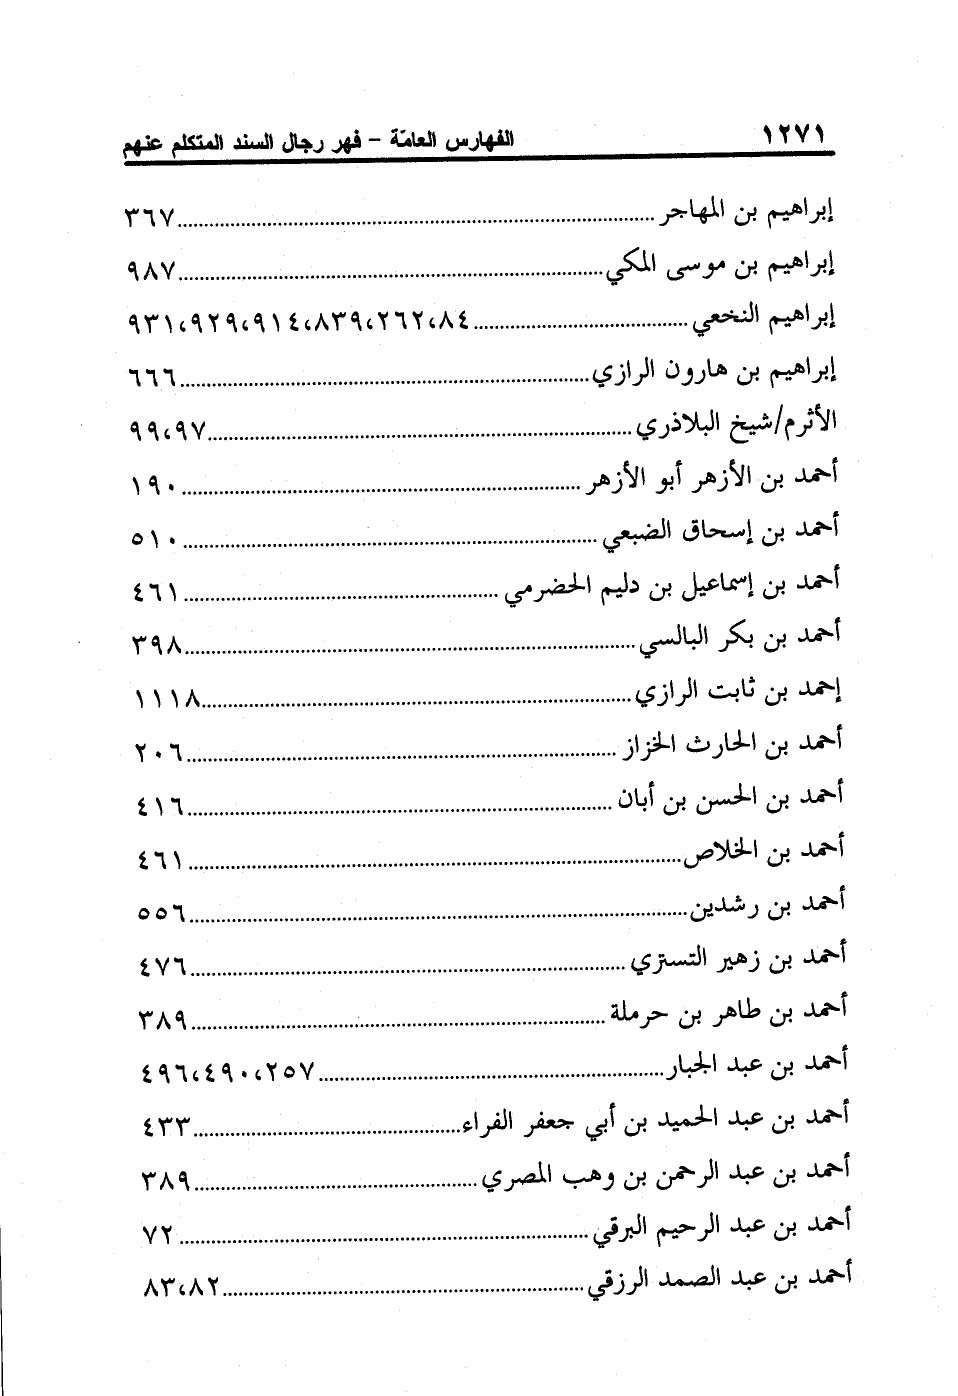 ١٢٧١ الفهارس العامّة – فهر رجال السند المتكلم عنهم
إبراهيم بن المهاجر ........ ٣٦٧
إبراهيم بن موسى المكي ........ ٩٨٧
إبراهيم النخعي ........ ٨٤، ٢٦٢، ٨٣٩، ٩١٤، ٩٢٩، ٩٣١
إبراهيم بن هارون الرازي ........ ٦٦٦
الأثرم/شيخ البلاذري ........ ٩٧، ٩٩
أحمد بن الأزهر أبو الأزهر ........ ١٩٠
أحمد بن إسحاق الضبعي ........ ٥١٠
أحمد بن إسماعيل بن دليم الحضرمي ........ ٤٦١
أحمد بن بكر البالسي ........ ٣٩٨
إحمد بن ثابت الرازي ........ ١١١٨
أحمد بن الحارث الخزاز ........ ٢٠٦
أحمد بن الحسن بن أبان ........ ٤١٦
أحمد بن الخلاص ........ ٤٦١
أحمد بن رشدين ........ ٥٥٦
أحمد بن زهير التستري ........ ٤٧٦
أحمد بن طاهر بن حرملة ........ ٣٨٩
أحمد بن عبد الجبار ........ ٢٥٧، ٤٩٠، ٤٩٦
أحمد بن عبد الحميد بن أبي جعفر الفراء ........ ٤٣٣
أحمد بن عبد الرحمن بن وهب المصري ........ ٣٨٩
أحمد بن عبد الرحيم البرقي ........ ٧٢
أحمد بن عبد الصمد الرزقي ........ ٨٢، ٨٣